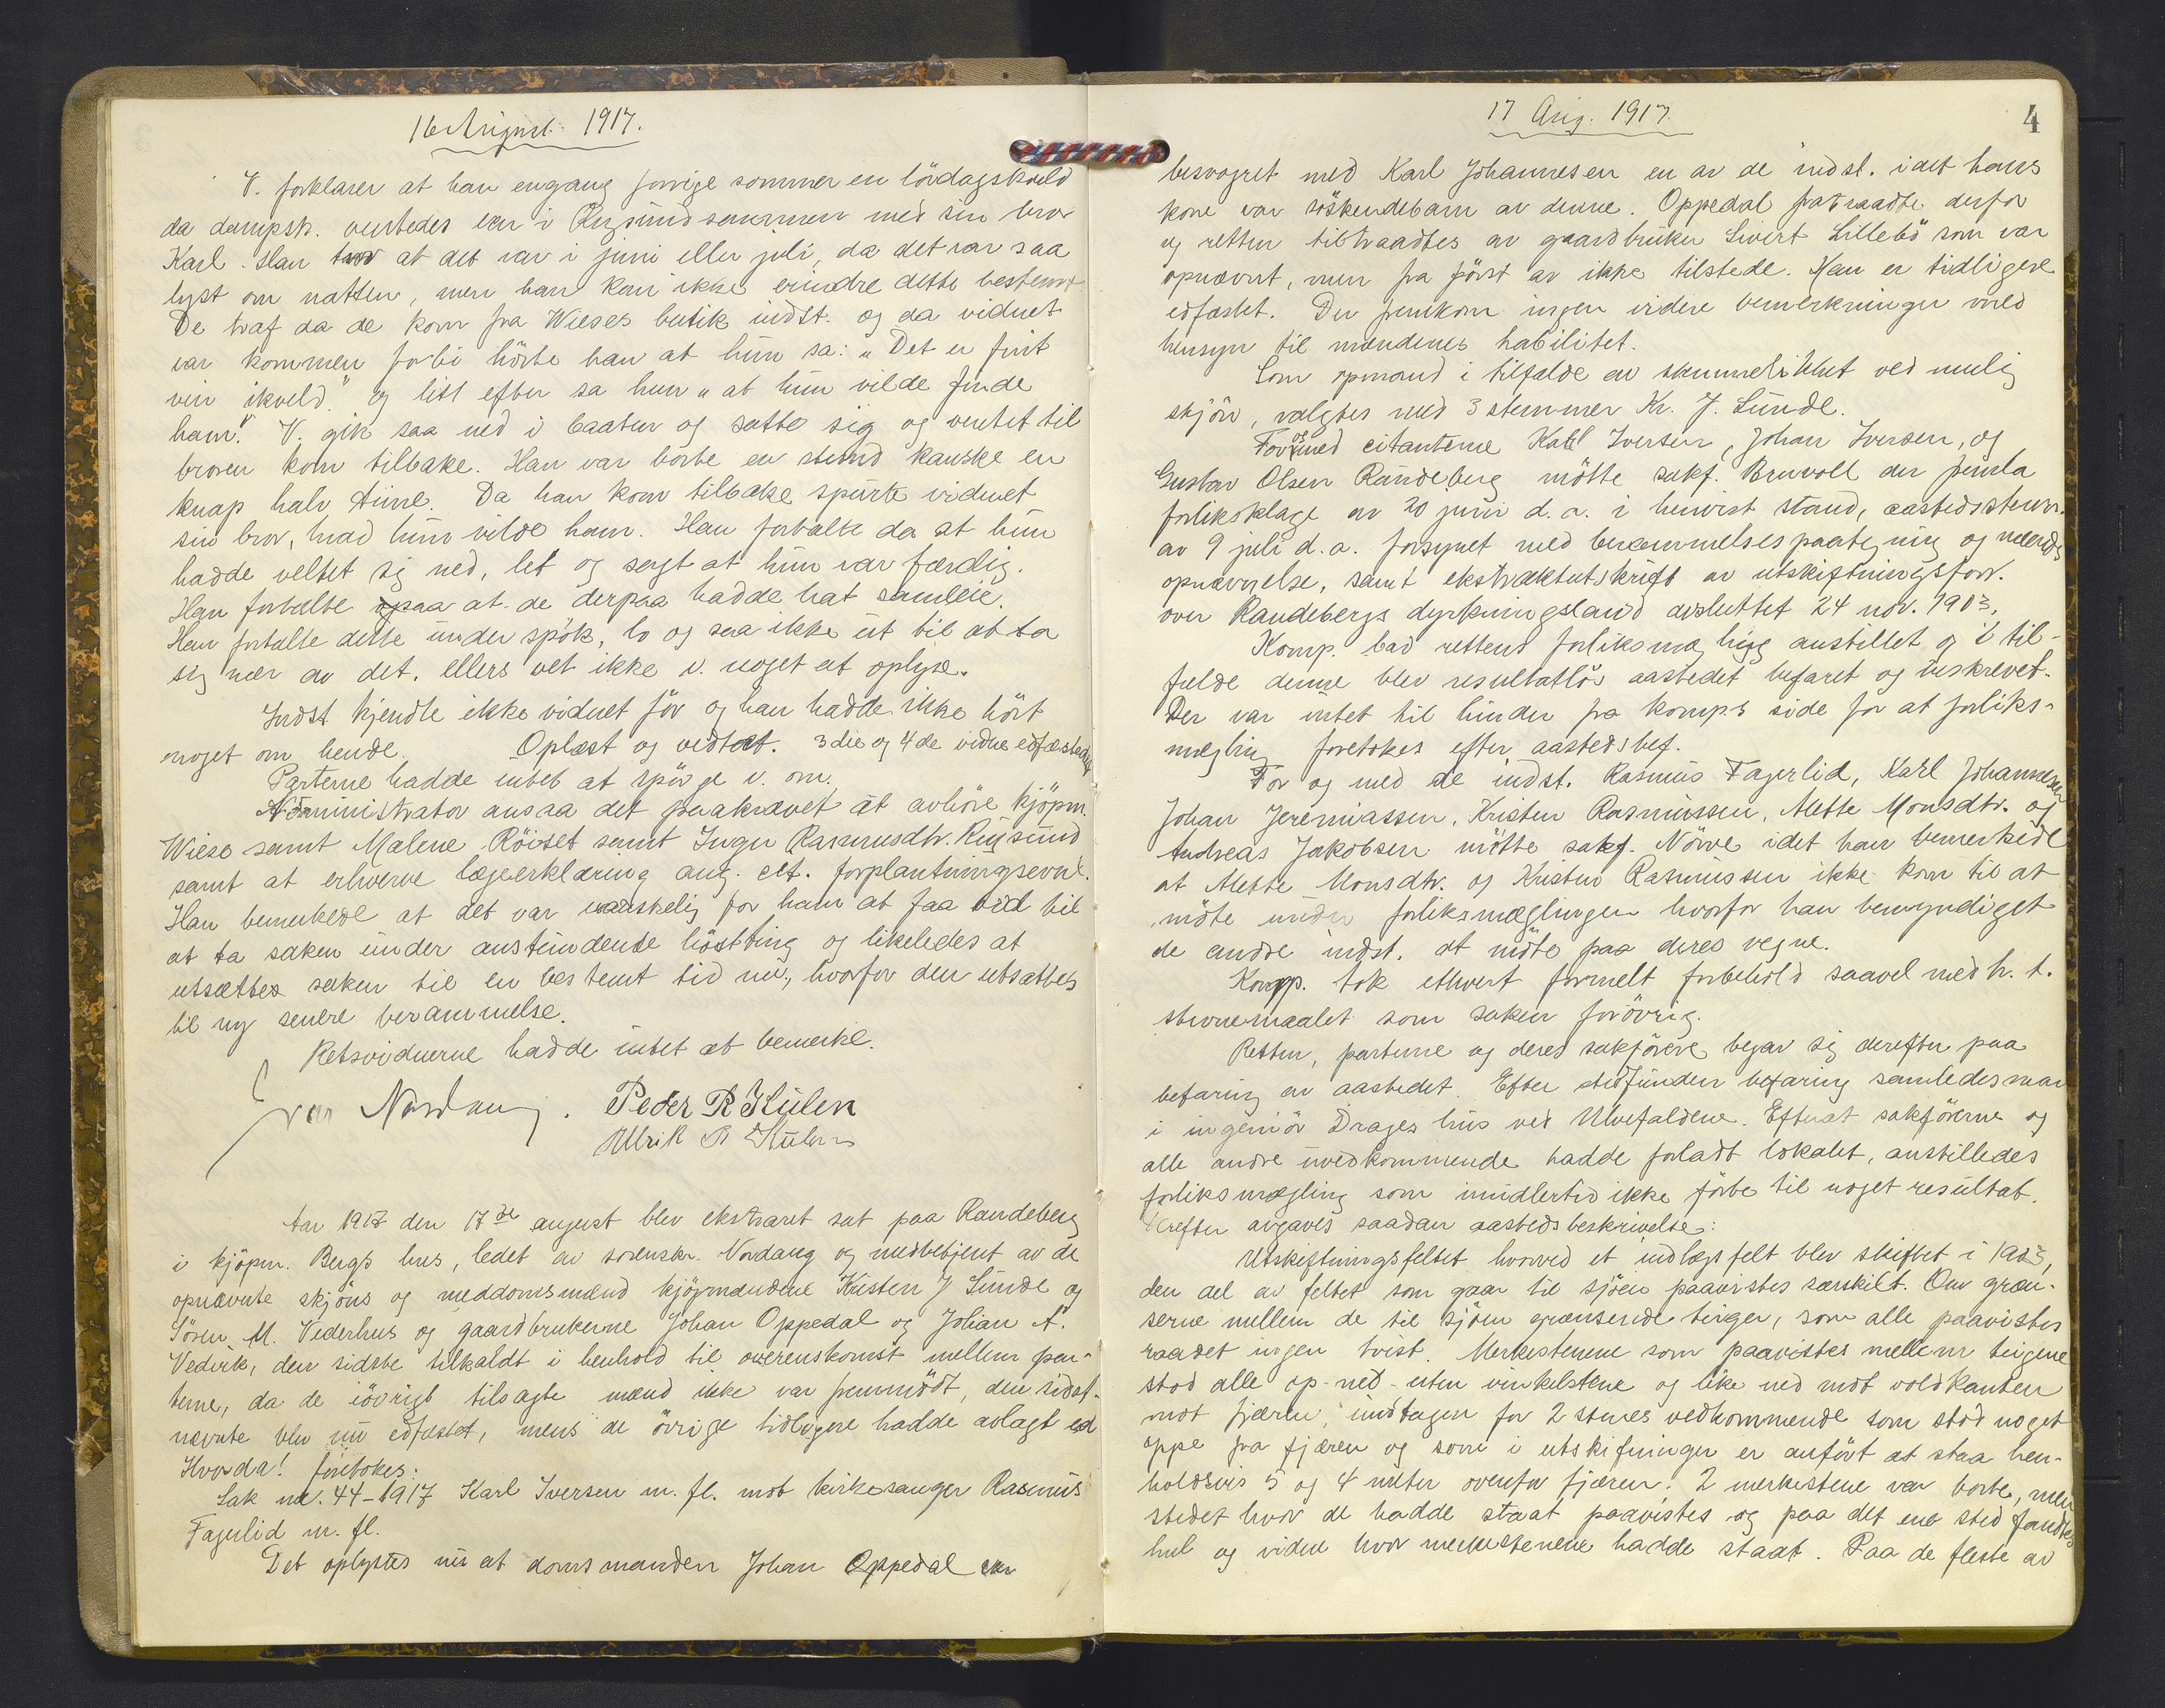 16 August 1917.
V. forklarer at han engang forrige sommer en lördagskveld
da dampsk. ventedes var i Rugsundsvaummen med sin bror
Karl. Han tror at det var i juni eller juli, da det var saa
lyst om natten, men han kan ikke erindre dette bestemt
De traf da de kom fra Wieses butik indst. og da vidnet
var kommen forbi hörte han at hun sa: "Det er fint
veir ikveld." og litt efter sa hun "at hun vilde finde
ham." V. gik saa ned i baaten og satte sig og ventet til
broren kom tilbake. Han var borte en stund kanske en
knap halv time. Da han kom tilbake spurte vidnet
sin bror, hvad hun vilde ham. Han fortalte da at hun
hadde veltet sig ned, let og sagt at hun var færdig.
Han fortalte ogsaa at de derpaa hadde hat samleie.
Han fortalte dette under spök, lo og saa ikke ut til at ta
sig nær av det. ellers vet ikke v. noget at oplyse.
Indst. kjendte ikke vidnet för og han hadde ikke hört
noget om hende. Oplæst og vedtat. 3die og 4de vidne edfæstedes
Parterne hadde intet at spörge v. om.
Administrator ansaa det paakrævet at avhöre kjöpm.
Wiese samt Malene Röiset samt Inga Rasmusdtr. Rugsund
samt at erhverve lægeerklæring ang. clt. forplantningsevne.
Han bemerkede at det var vanskelig for ham at faa tid til
at ta saken under anstundende hösting og likeledes at
utsættes saken til en bestemt tid nu, hvorfor den utsattes
til ny senere berammelse.
Retsvidnerne hadde intet at bemerke.
Nordaug. Peder R Hulen
Ulrik B Hulen
An 1917 den 17de august blev ekstraret sat paa Randeberg
i kjöpm. Bergs hus, ledet av sorenskr. Nordaug og medbetjent av de
opnævnte skjöns og meddomsmænd kjöpmændene Kristen J Sunde og
Sören M. Vederhus og gaardbrukerne Johan Oppedal og Johan A.
Vedvik, den sidste tilkaldt i henhold til overenskomst mellem par-
terne, da de iövrigt tilsagte mænd ikke var fremmödt, den sidst-
nævnte blev nu edfæstet, mens de övrige tidligere hadde avlagt ed
Hvorda! foretokes:
Sak nr. 44-1917 Karl Iversen m. fl. mot kirkesanger Rasmus
Fagerlid m. fl.
Det oplystes nu at domsmanden Johan Oppedal var
17 Aug. 1917.
4
besvogret med Karl Johannesen en av de indst. idet hans
kone var söskendebarn av denne. Oppedal fratraadte derfor
og retten tiltraadtes av gaardbruker Sivert Lillebö som var
opnævnt, men fra först av ikke tilstede. Han er tidligere
edfæstet. Der fremkom ingen videre bemerkninger med
hensyn til mændenes habilitet.
Som opmand i tilfælde av stemmelikhet ved mulig
skjön, valgtes med 3 stemmer Kr. J. Sunde.
For og med citanterne Karl Iversen, Johan Iversen, og
Gustav Olsen Randeberg mötte sakf. Bruvoll der fremla
forliksklage av 20 juni d. a. i henvist stand, aastedsstevn.
av 9 juli d. a. forsynet med berammelsespaategning og mænds
opnævnelse, samt ekstraktutskrift av utskiftningsforr.
over Randebergs dyrkningsland avsluttet 24 nov. 1903.
Komp. bad rettens forliksmægling anstillet og i til-
fælde denne blev resultatlös aastedet befaret og beskrevet.
Der var intet til hinder fra komps side for at forliks-
mægling foretokes efter aastedsbef.
For og med de indst. Rasmus Fagerlid, Karl Johannesen
Johan Jeremiassen, Kristen Rasmussen, Mette Monsdtr. og
Andreas Jakobsen mötte sakf. Nörve idet han bemerkede
at Mette Monsdtr. og Kristen Rasmussen ikke kom til at
möte under forliksmæglingen hvorfor han bemyndiget
de andre indst. at möte paa deres vegne.
Kompp. tok ethvert formelt forbehold saavel med h. t.
stevnemaalet som saken forövrig.
Retten, parterne og deres sakförere begav sig derefter paa
befaring av aastedet. Efter stedfunden befaring samledes man
i ingeniör Drages hus ved Ulvefaldene. Efterat sakförerne og
alle andre uvedkommende hadde forladt lokalet, anstilledes
forliksmægling som imidlertid ikke förte til noget resultat.
Derefter avgaves saadan aastedsbeskrivelse:
Utskiftningsfeltet hvorved et indlagt felt blev skiftet i 1903,
den del av feltet som gaar til sjöen paavistes særskilt. Om græn-
serne mellem de til sjöen grænsende teiger, som alle paavistes
raadet ingen tvist. Merkestenene som paavistes mellem teigene
stod alle op-ned-uten vinkelstene og like ned mot voldkanten
mot fjæren, undtagen for 2 stenes vedkommende som stod noget
oppe fra fjæren og som i utskifninger er anfört at staa hen-
holdsvis 5 og 4 meter ovenfor fjæren. 2 merkestene var borte, men
stedet hvor de hadde staat paavistes og paa det ene sted fandtes
hul og vidne hvor merkestenene hadde staat. Paa de fleste av